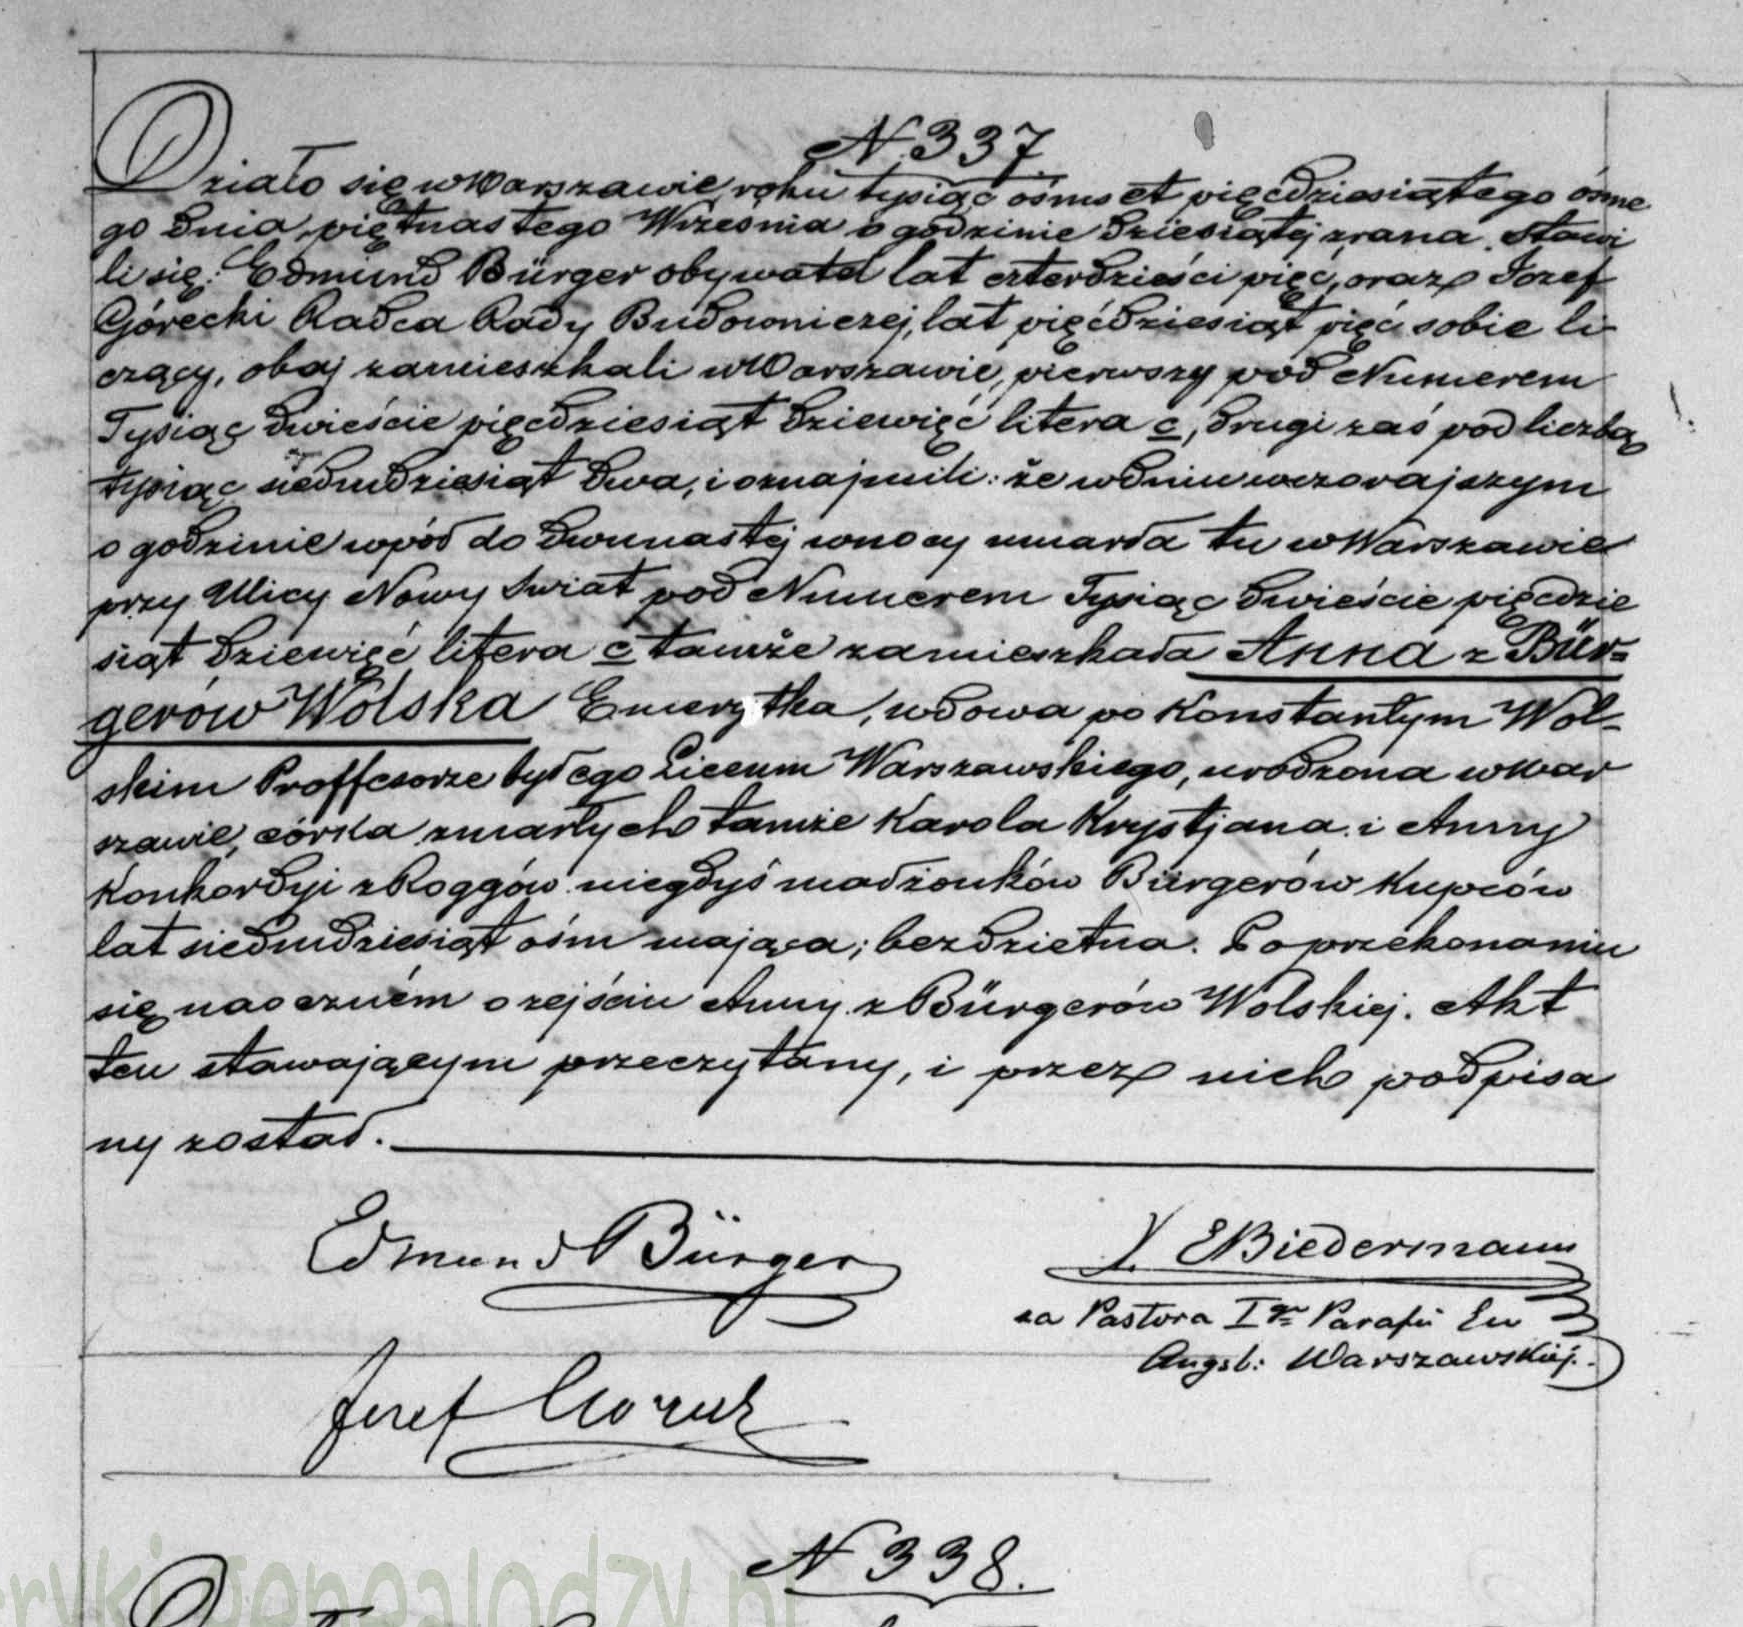 N. 337.
Działo się w Warszawie, roku tysiąc ośmset pięćdziesiątego ósme
go dnia piętnastego Września o godzinie dziesiątej zrana. Stawi
li się: Edmund Bürger obywatel lat czterdzieści pięć, oraz Józef
Górecki Radca Rady Budowniczej, lat pięćdziesiąt pięć sobie li-
czący, obaj zamieszkali w Warszawie, pierwszy pod Numerem
Tysiąc dwieście pięćdziesiąt dziewięć litera c, drugi zaś pod liczbą
tysiąc siedmdziesiąt dwa, i oznajmili: że w dniu wczorajszym
o godzinie wpół do dwunastej w nocy umarła tu w Warszawie
przy Ulicy Nowy Świat pod Numerem Tysiąc dwieście pięćdzie
siąt dziewięć litera c tamże zamieszkała Anna z Bür=
gerów Wolska Emerytka, wdowa po Konstantym Wol-
skim Proffesorze byłego Liceum Warszawskiego, urodzona w War
szawie, córka zmarłych tamże Karola Krystjana i Anny
Konkordyi z Roggów niegdyś małżonków Bürgerów Kupców
lat siedmdziesiąt ośm mająca; bezdzietna. Po przekonaniu
się naoczném o zejściu Anny z Bürgerów Wolskiej. Akt
ten stawającym przeczytany, i przez nich podpisa
ny został.
Edmund Bürger
X. E Biedermann
za Pastora Igo Parafii Ew
Augsb: Warszawskiéj.
Jozef Gorecki
N 338.